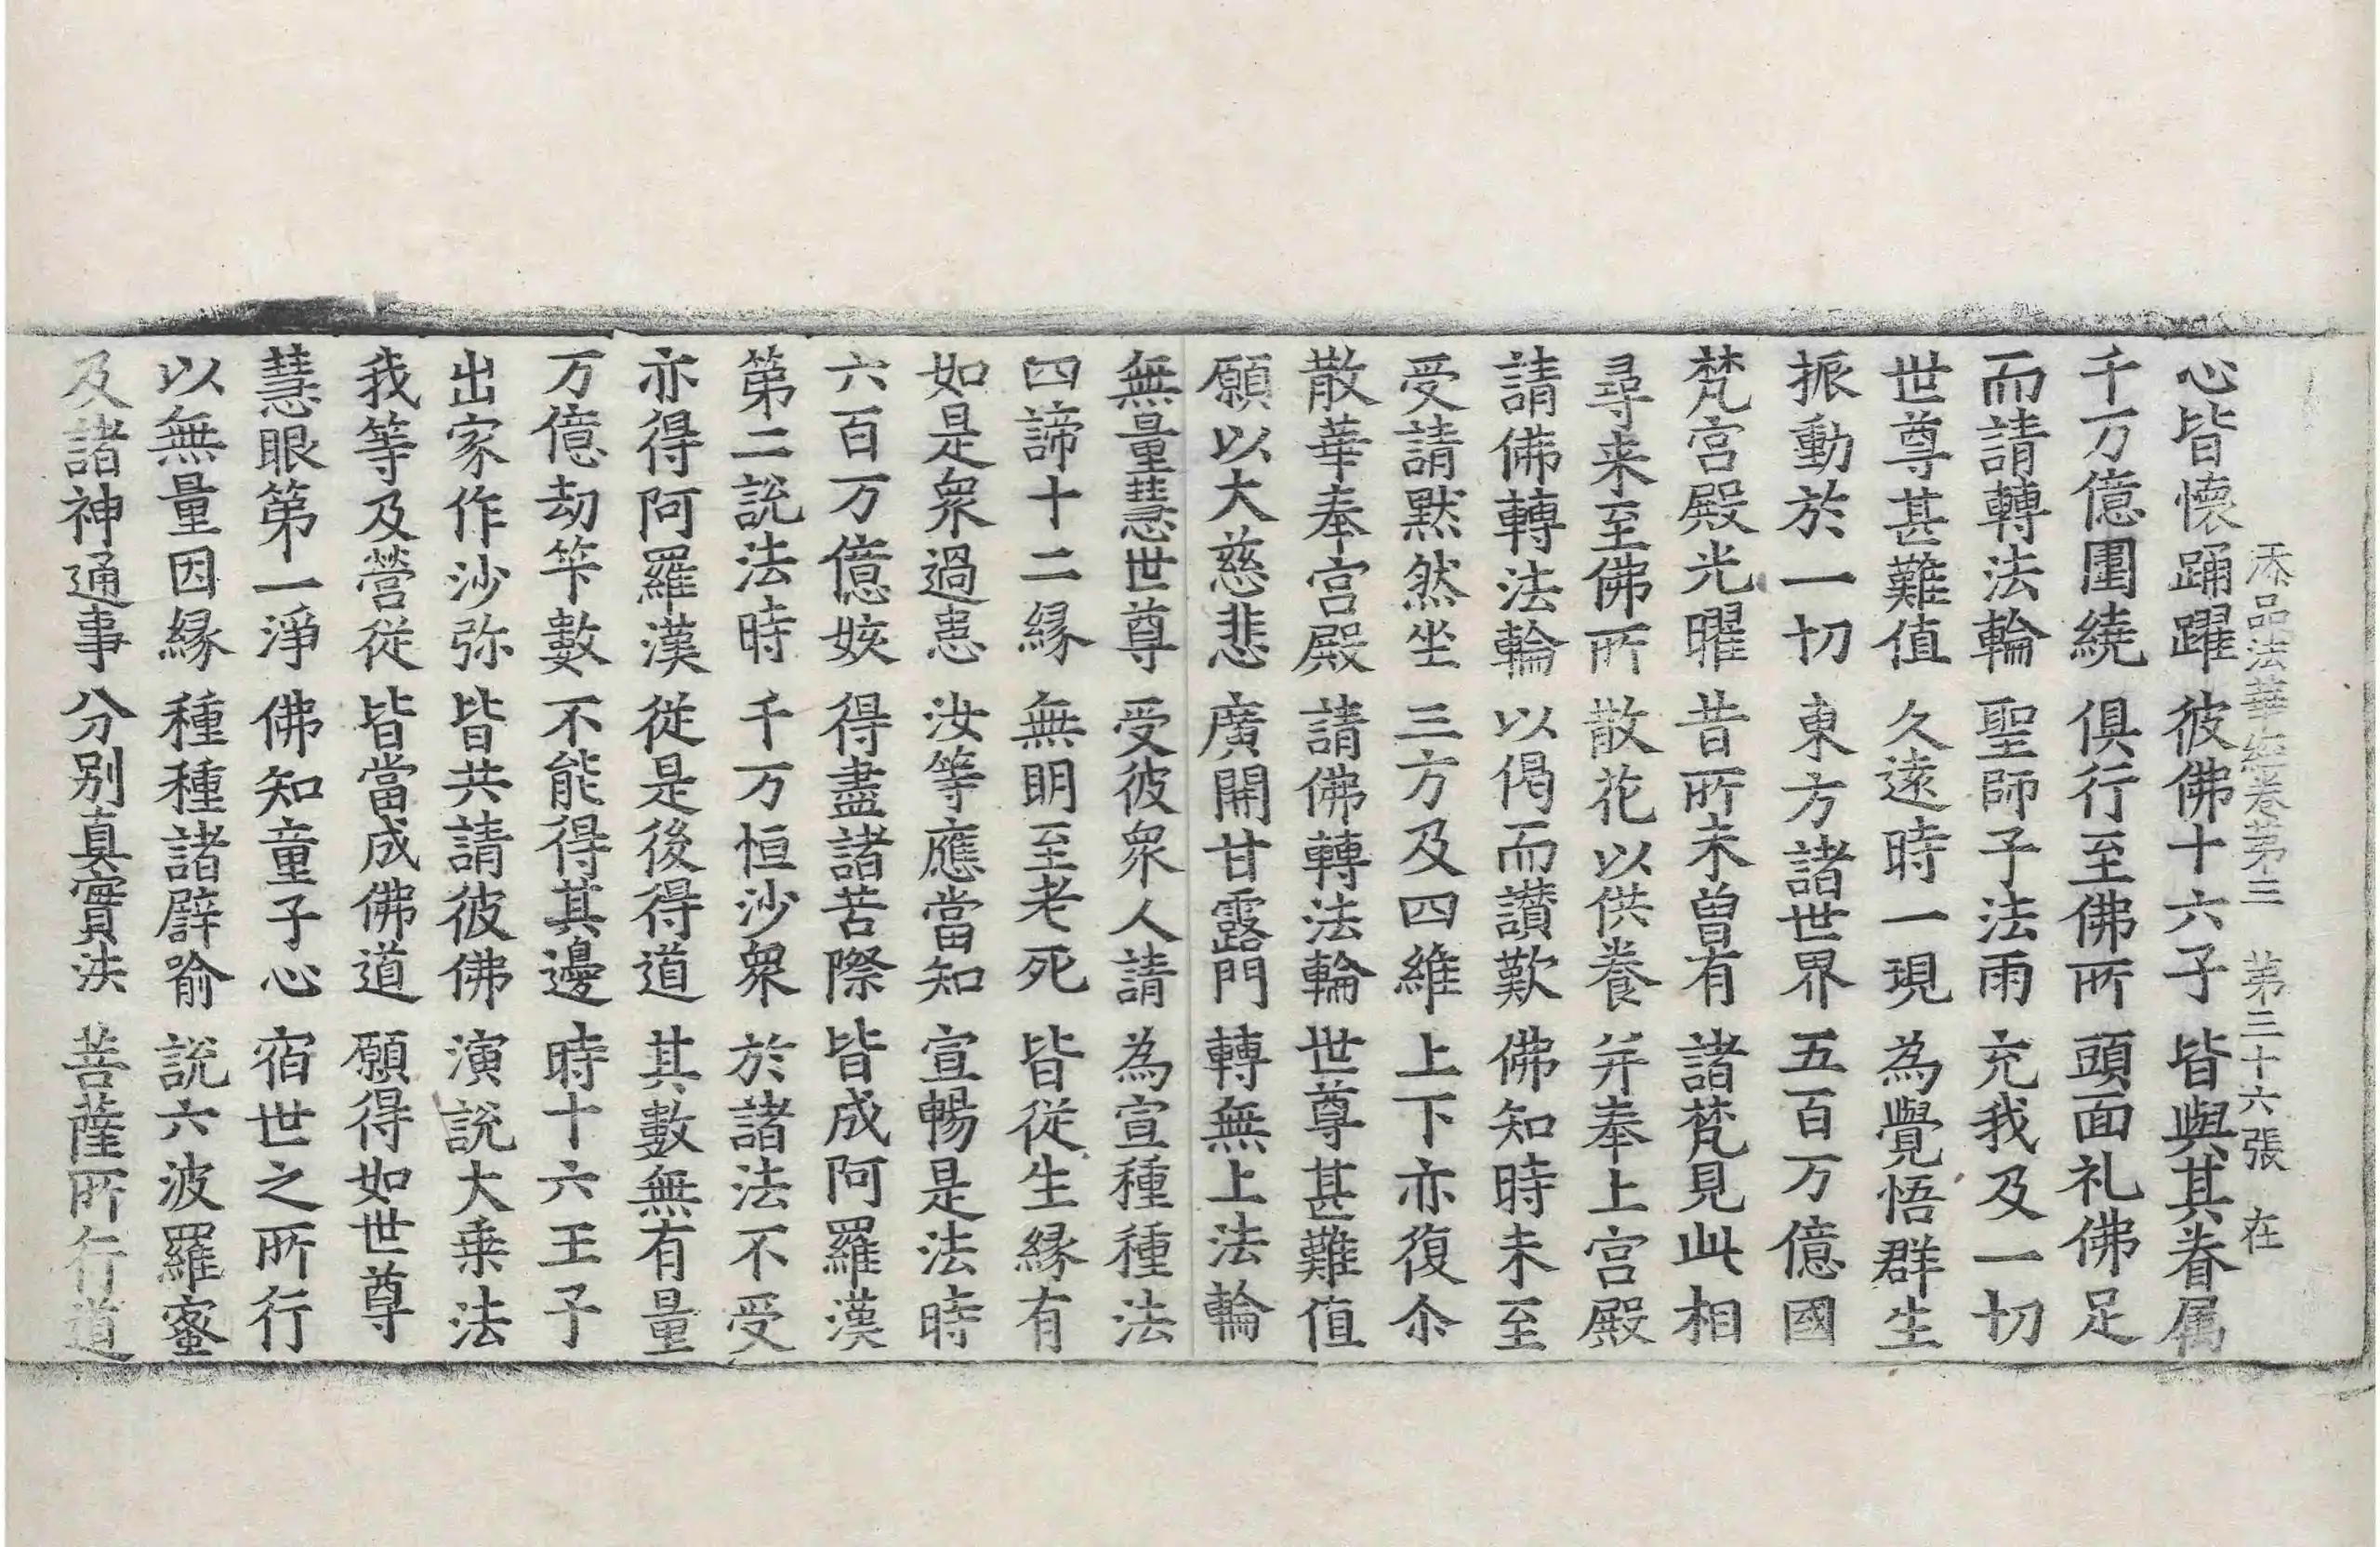 添品法華經卷第三　第三十六張　在
心皆懷踊躍　彼佛十六子　皆與其眷属
千万億圍繞　俱行至佛所　頭面礼佛足
而請轉法輪　聖師子法雨　充我及一切
世尊甚難值　久遠時一現　為覺悟群生
振動於一切　東方諸世界　五百万億國
梵宮殿光曜　昔所未曾有　諸梵見此相
尋来至佛所　散花以供養　并奉上宮殿
請佛轉法輪　以偈而讃歎　佛知時未至
受請默然坐　三方及四維　上下亦復尒
散華奉宮殿　請佛轉法輪　世尊甚難值
願以大慈悲　廣開甘露門　轉無上法輪
無量慧世尊　受彼衆人請　為宣種種法
四諦十二緣　無明至老死　皆從生緣有
如是衆過患　汝等應當知　宣暢是法時
六百万億姟　得盡諸苦際　皆成阿羅漢
第二說法時　千万恒沙衆　於諸法不受
亦得阿羅漢　從是後得道　其數無有量
万億劫竿數　不能得其邊　時十六王子
出家作沙弥　皆共請彼佛　演說大乗法
我等及營從　皆當成佛道　願得如世尊
慧眼第一淨　佛知童子心　宿世之所行
以無量因緣　種種諸譬喻　說六波羅蜜
及諸神通事　分別真實法　菩薩所行道